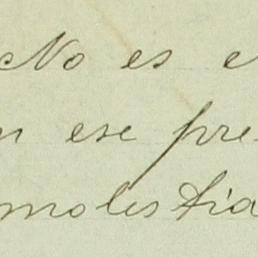 No es e
n ese pre
molestia